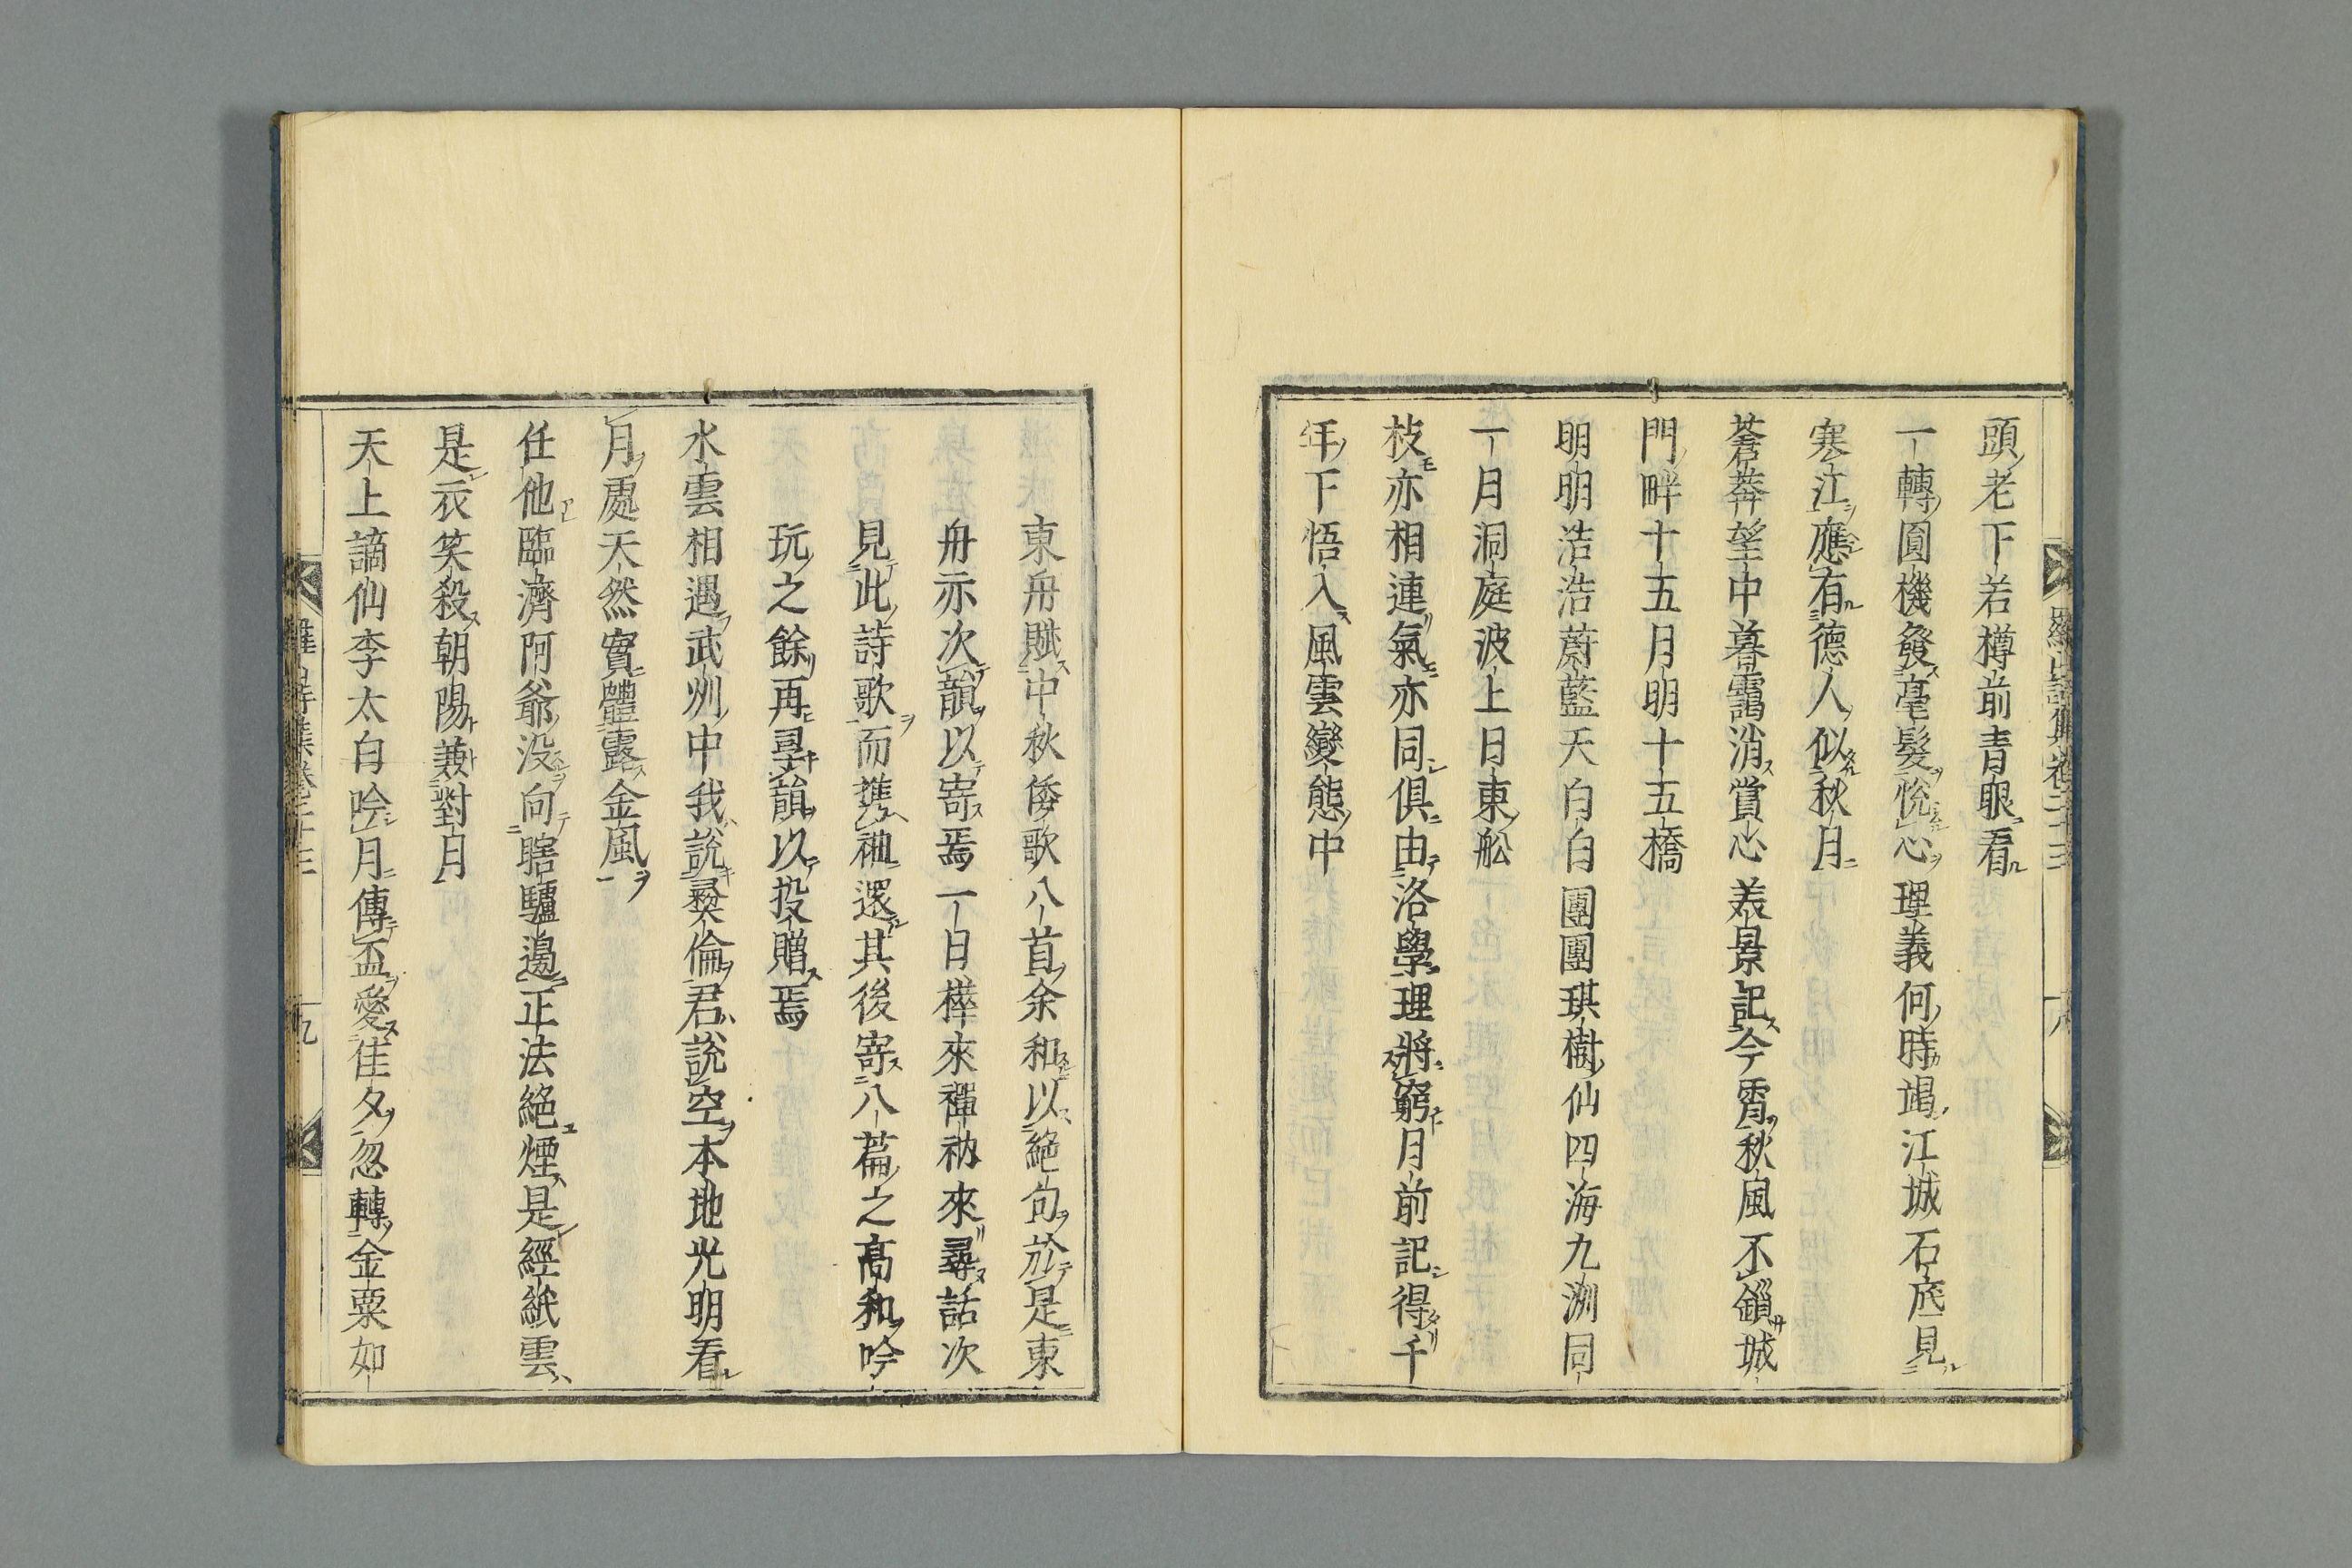 羅山詩集卷三十三
八
頭老下若樽前青眼看
一轉圓機發毫髮悅心理義何時竭江城石底見
寒江應有德人似秋月
蒼莽望中暮靄消賞心美景記今霄秋風不鎻城
門畔十五月明十五橋
明明浩浩蔚藍天白白團團琪樹仙四海九洲同
一月洞庭波上日東舩
枝亦相連氣亦同俱由洛學理將窮月前記得千
年下悟入風雲變態中
東舟賦中秋倭歌八首余和以絕句於是東
舟示次韻以寄焉一日樺來禪衲來尋話次
見此詩歌而携袖還其後寄八篇之高和吟
玩之餘再尋韻以投贈焉
水雲相遇武州中我說彛倫君說空本地光明看
月處天然實體露金風
任他臨濟阿爺没向瞎驢邊正法絕煙是經紙雲
是衣笑殺朝陽兼對月
天上謫仙李太白吟月傳盃愛佳夕忽轉金粟如
九